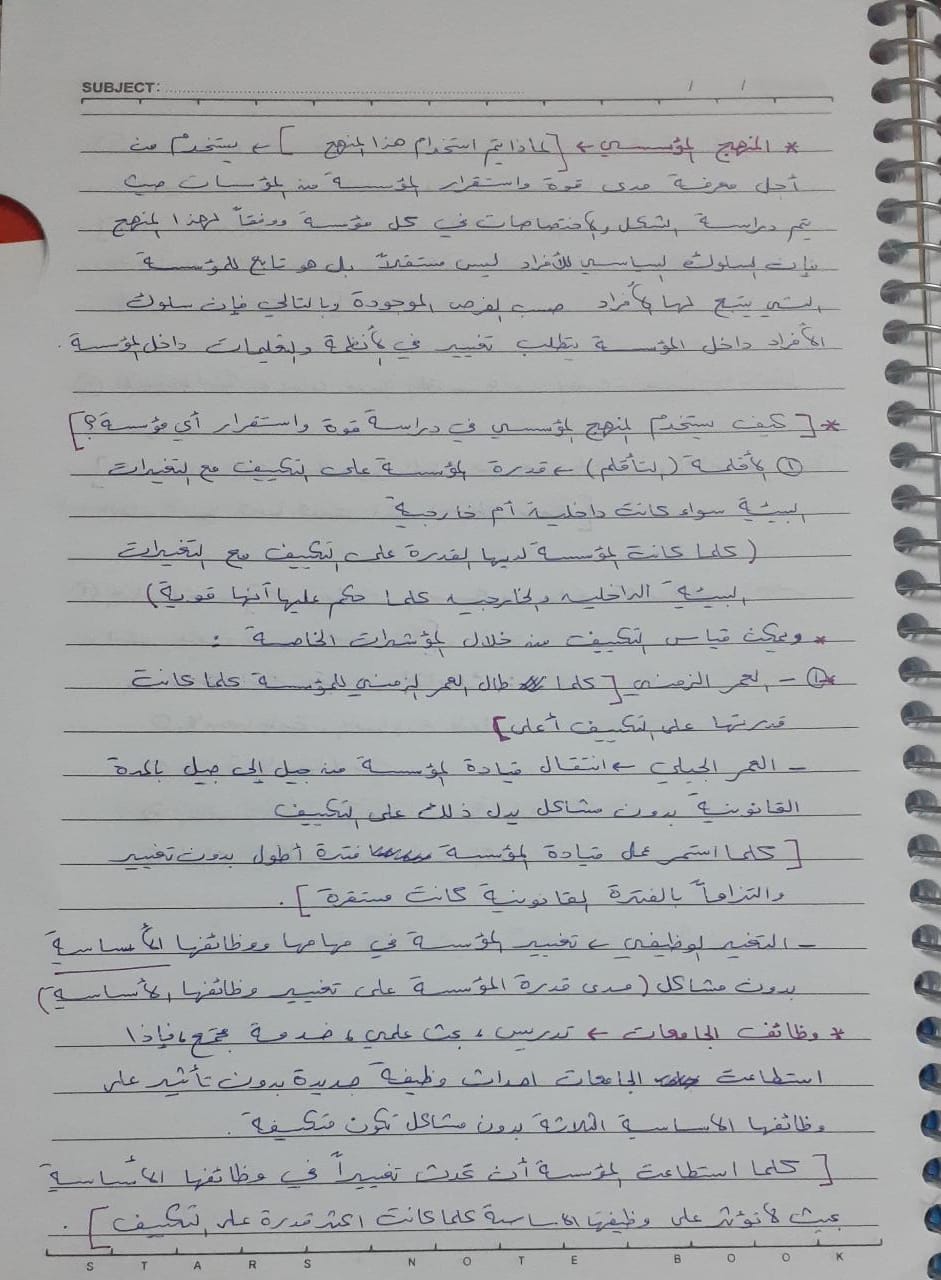 SUBJECT: / /
* المنهج المؤسسي ← [لماذا يتم استخدام هذا المنهج] ← يستخدم من
أجل معرفة مدى قوة واستقرار المؤسسة من المؤسسات حيث
يتم دراسة الشكل والاختصاصات في كل مؤسسة ووفقاً لهذا المنهج
فإن السلوك السياسي للأفراد ليس مستقلاً بل هو تابع للمؤسسة
التي يتبع لها الأفراد حسب الفرص الموجودة وبالتالي فإن سلوك
الأفراد داخل المؤسسة يتطلب تغيير في الأنظمة والتعليمات داخل المؤسسة.
* [كيف يستخدم المنهج المؤسسي في دراسة قوة واستقرار أي مؤسسة؟]
① الأقلمة (التأقلم) ← قدرة المؤسسة على التكييف مع التغيرات
البيئية سواء كانت داخلية أم خارجية
(كلما كانت المؤسسة لديها القدرة على التكييف مع التغيرات
البيئية الداخليه والخارجيه كلما حكم عليها أنها قوية)
* ويمكن قياس التكييف من خلال المؤشرات الخاصة :
*① - العمر الزمني [كلما طال العمر الزمني للمؤسسة كلما كانت
قدرتها على التكييف أعلى]
- العمر الجيلي ← انتقال قيادة المؤسسة من جيل إلى جيل بالمدة
القانونية بدون مشاكل يدل ذلك على التكييف
[كلما استمر عمل قيادة المؤسسة فترة أطول بدون تغيير
والتزاماً بالفترة القانونية كانت مستقرة].
- التغير الوظيفي ← تغيير المؤسسة في مهامها ووظائفها الأساسية
بدون مشاكل (مدى قدرة المؤسسة على تغيير وظائفها الأساسية)
* وظائف الجامعات ← تدريس، بحث علمي، خدمة مجتمع، فإذا
استطاعت الجامعات احداث وظيفة جديدة بدون تأثير على
وظائفها الأساسية الثلاثة بدون مشاكل تكون متكيفة.
[كلما استطاعت المؤسسة أن تحدث تغييراً في وظائفها الأساسية
بحيث لا تؤثر على وظيفتها الاساسية كلما كانت اكثر قدرة على التكييف].
STARS NOTE BOOK